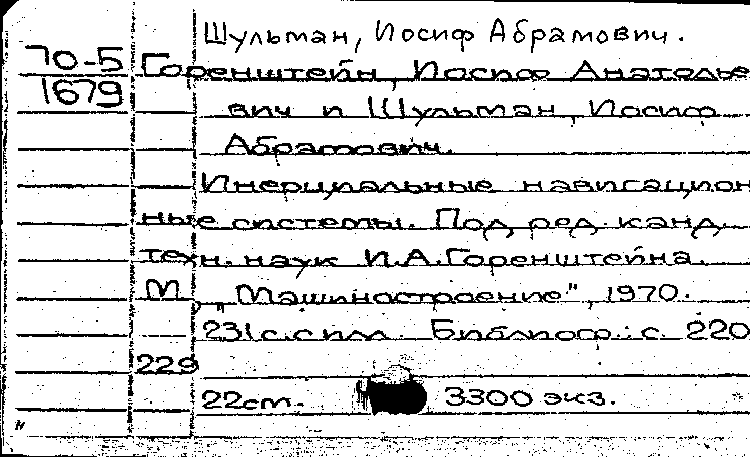 Шульман, Иосиф Абрамович.
70-5 Горенштейн, Иосиф Анатолье
1679 вич и Шульман, Иосиф
Абрамович.
Инерциальные навигацион
ные системы. Под ред. канд.
техн. наук И.А.Горенштейна.
М., „Машиностроение", 1970.
231с. с илл. Библиогр.: с. 220
229
22см. 3300 экз.